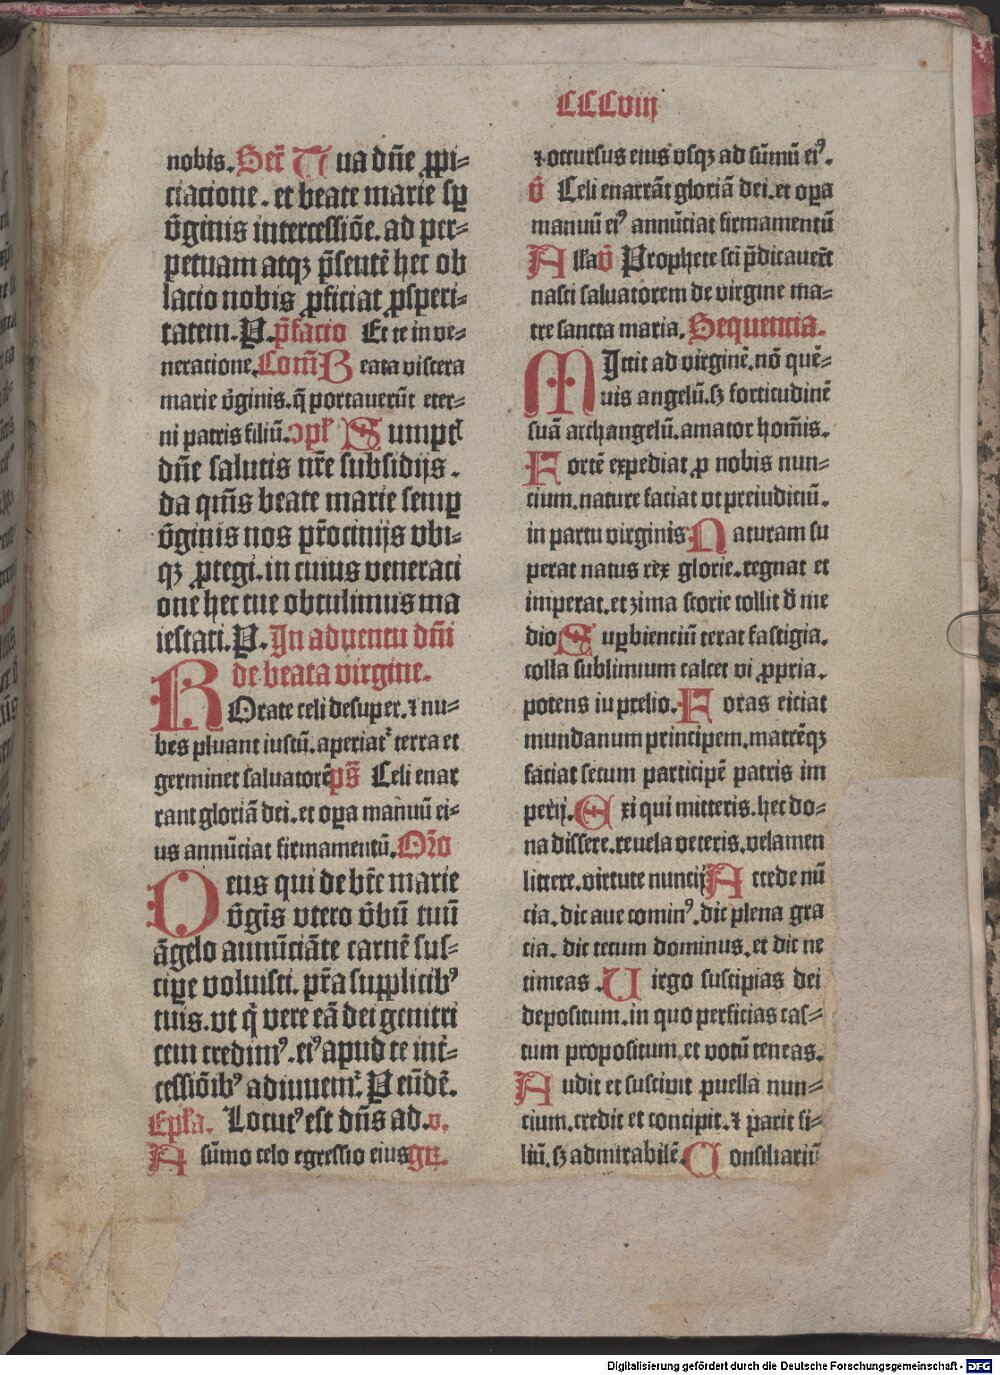 CCCviij
nobis. Secr̄ Tua dn̄e ꝓpi⸗
ciacione . et beate marie sꝑ
v̄ginis intercessiōe. ad per⸗
petuam atqꝫ p̄sentē hec ob
lacio nobis ꝓficiat ꝓsperi⸗
tatem. P. p̄facio Et te in ve⸗
neracione. Com̄ Beata viscera
marie v̄ginis. q̄ portauerūt eter⸗
ni patris filiū. ↄpl̄ Sumptꝭ
dn̄e salutis nr̄e subsidijs .
da qm̄s beate marie semꝑ
v̄ginis nos pr̄ocinijs vbi⸗
qꝫ ꝓtegi. in cuius veneraci
one hec tue obtulimus ma
iestati. P. In aduentu dn̄i
de beata virgine.
ROrate celi desuper. ⁊ nu⸗
bes pluant iustū. aperiat᷑ terra et
germinet saluatorē ps̄ Celi enar
rant gloriā dei. et oꝑa manuū ei⸗
us annūciat firmamentū. Or̄o
Deus qui de bt̄e marie
v̄gīs vtero v̄bū tuū
āgelo annūciāte carnē sus⸗
cipe voluisti. pr̄a supplicibꝰ
tuis. vt q̄ vere eā dei genitri
cem credimꝰ. eiꝰ apud te int̄⸗
cessiōibꝰ adiuuem᷑. P eūdē.
Epl̄a. Locutꝰ est dn̄s ad .v.
A sūmo celo egressio eius gr̄.
⁊ occursus eius vsqꝫ ad sūmū eiꝰ.
v̄ Celi enarrāt gloriā dei. et oꝑa
manuū eiꝰ annūciat firmamentū
Alla v̄ Prophete sc̄i p̄dicauerūt
nasci saluatorem de virgine ma⸗
tre sancta maria. Sequencia.
MIttit ad virginē. nō quē⸗
uis angelū. sꝫ fortitudinē
suā archangelū. amator hoīs.
Fortē expediat ꝓ nobis nun⸗
cium. nature faciat vt preiudiciū.
in partu virginis Naturam su
perat natus rex glorie. regnat et
imperat. et zima scorie tollit d̄ me
dio Suꝑbienciū terat fastigia.
colla sublimium calcet vi ꝓpria.
potens in prelio. Foras eiciat
mundanum principem. matrēqꝫ
faciat secum participē patris im
perij. Exi qui mitteris. hec do⸗
na dissere. reuela veteris. velamen
littere. virtute nuncij Accede nū
cia. dic aue cominꝰ. dic plena gra
cia. dic tecum dominus. et dic ne
timeas . Uirgo suscipias dei
depositum. in quo perficias cas⸗
tum propositum et votū teneas.
Audit et suscipit puella nun⸗
cium. credit et concipit. ⁊ parit fi⸗
liū. sꝫ admirabilē. Consiliariū
Digitalisierung gefördert durch die Deutsche Forschungsgemeinschaft - DFG